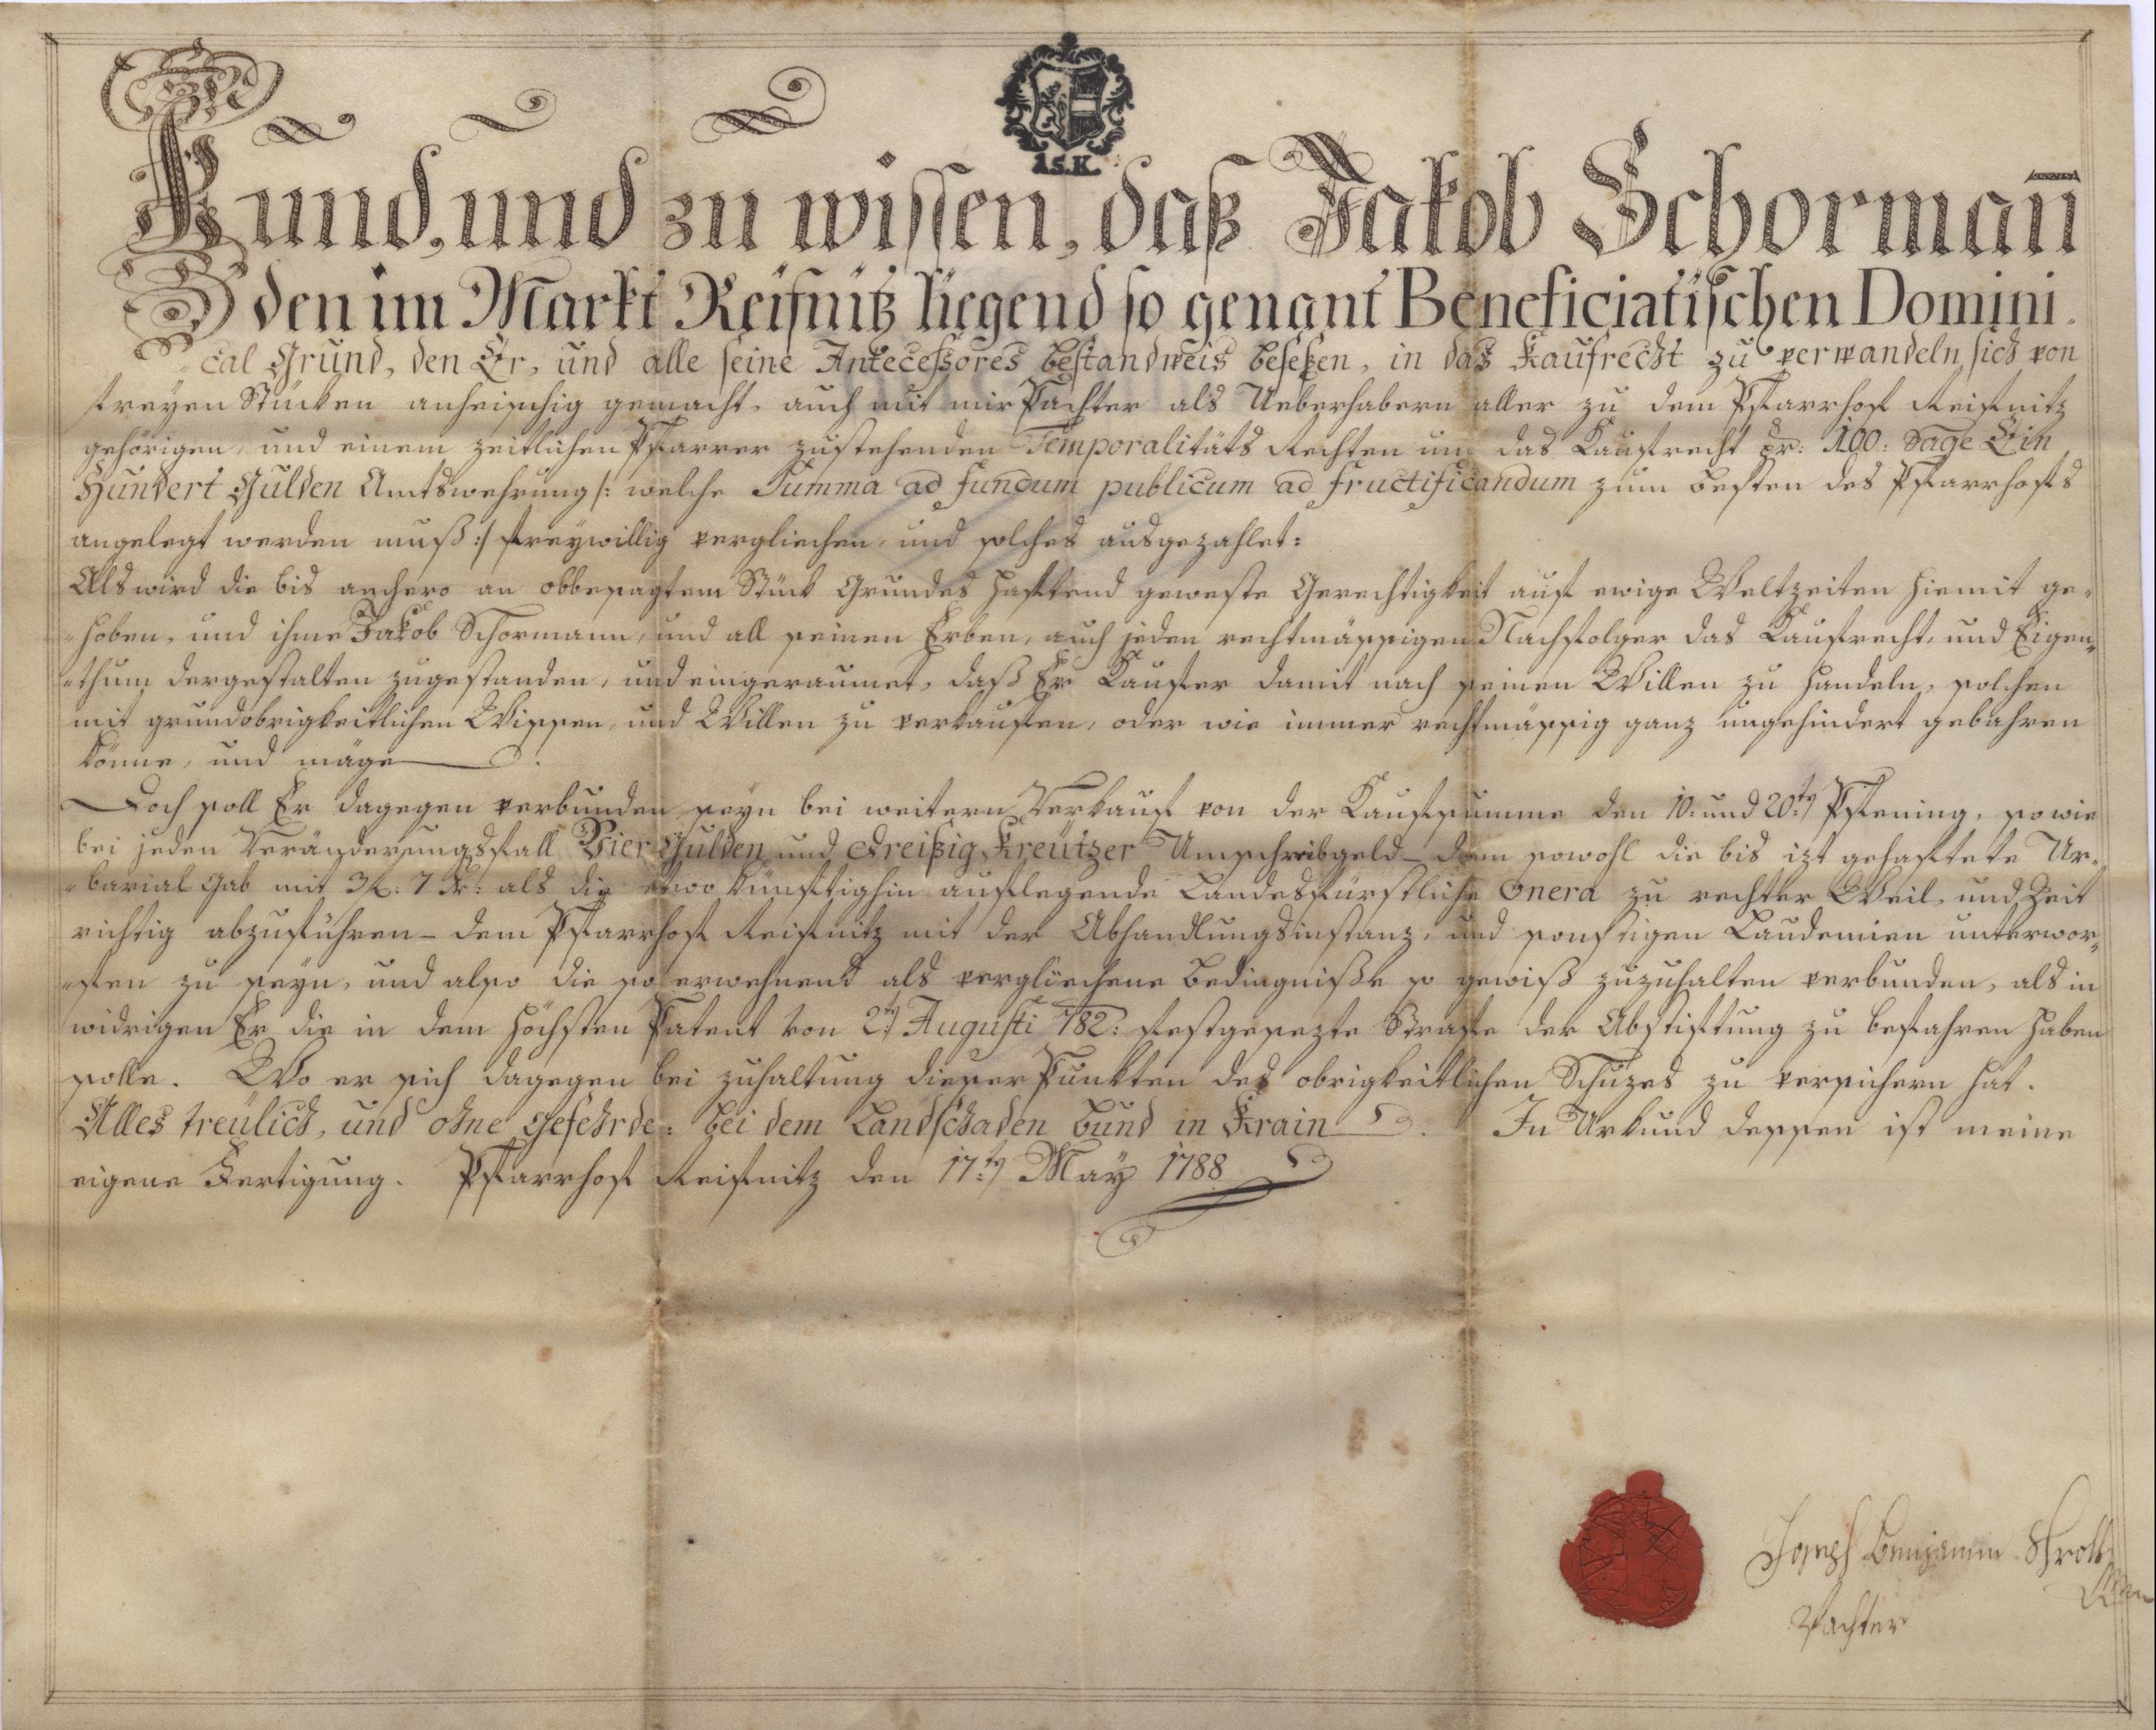 15.K.
Kund, und zu wissen, daß Jakob Schorman̄
den im Markt Reifnitz liegend so genant Beneficiatischen Domini-
cal Grund, den Er, und alle seine Antecessores bestandweis beseßen, in das Kaufrecht zu verwandeln, sich von
freyen Stücken anheischig gemacht, auch mit mir Pachter als Ueberhabern aller zu dem Pfarrhof Reifnitz
gehörigen, und einem zeitlichen Pfarrer zustehenden Temporalitäts Rechten um das Kaufrecht pr: 100: Sage Ein
Hundert Gulden Amtswehrung /: welche Summa ad fundum publicum ad fructificandum zum besten des Pfarrhofs
angelegt werden muß :/ freywillig vergliechen, und solches ausgezahlet:
Als wird die bis anhero an obbesagtem Stück Grundes haftend geweste Gerechtigkeit auf ewige Weltzeiten hiemit ge-
hoben, und ihme Jakob Schormann, und all seinen Erben, auch jeden rechtmässigen Nachfolger das Kaufrecht, und Eigen-
thum dergestalten zugestanden, und eingeraumet, daß Er Kaufer damit nach seinen Willen zu handeln, solchen
mit grundobrigkeitlichen Wissen, und Willen zu verkaufen, oder wie immer rechtmässig ganz ungehindert gebahren
könne, und möge
Doch soll Er dagegen verbunden seyn bei weitern Verkauf von der Kaufsumme den 10: und 20:ten Pfening, so wie
bei jeden Veränderungsfall Vier Gulden und dreißig Kreützer Umschreibgeld – dann sowohl die bis izt gehaftete Ur-
barial Gab mit 3 f: 7 xr: als die etwo künftighin auflegende Landesfürstliche Onera zu rechter Weil, und Zeit
richtig abzuführen – dem Pfarrhof Reifnitz mit der Abhandlungsinstanz, und sonstigen Laudemien unterwor-
fen zu seyn, und also die so erwehnend als vergliechene Bedingniße so gewiß zuzuhalten verbunden, als in
widrigen Er die in dem höchsten Patent von 2:ten Augusti 782: festgesezte Strafe der Abstiftung zu befahren haben
solle. Wo er sich dagegen bei zuhaltung dieser Punkten des obrigkeitlichen Schuzes zu versichern hat.
Alles treülich, und ohne gefehrde: bei dem Landschaden bund in Krain. In Urkund dessen ist meine
eigene Fertigung. Pfarrhof Reifnitz den 17:ten May 1788
Joseph Benjamin
Pachter